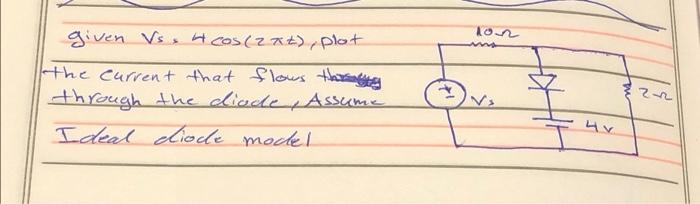 given Vs = 4 cos(2πt), plot
the current that flows
through the diode, Assume
Ideal diode model
10Ω
Vs
2Ω
4v